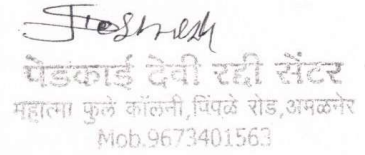 पेडकाई देवी रद्दी सेंटर
महात्मा फुले कॉलनी,पिंपळे रोड,अमळनेर
Mob.9673401563